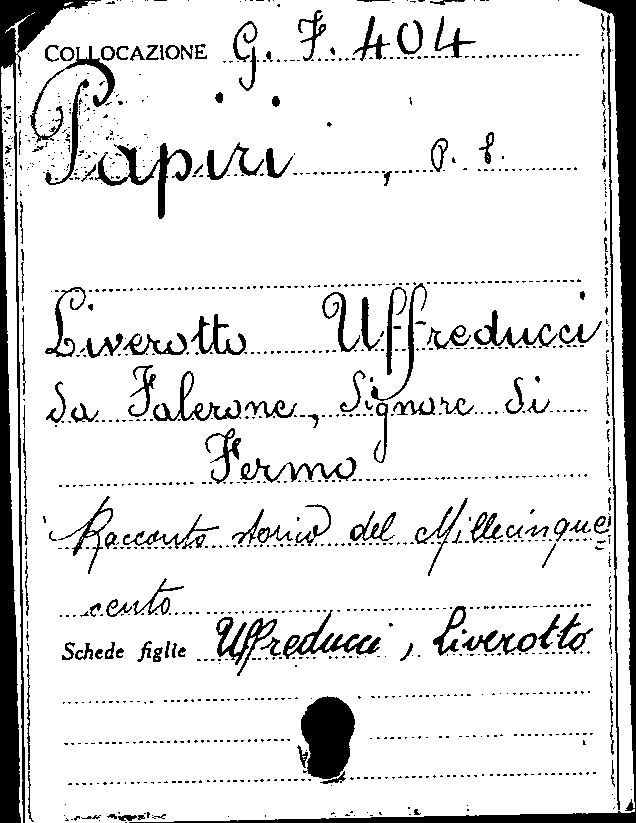 COLLOCAZIONE G. F. 404
Papiri, P. E.
Liverotto Uffreducci
da Falerone, Signore di
Fermo
Racconto storico del Millecinque=
cento
Schede figlie Uffreducci, Liverotto